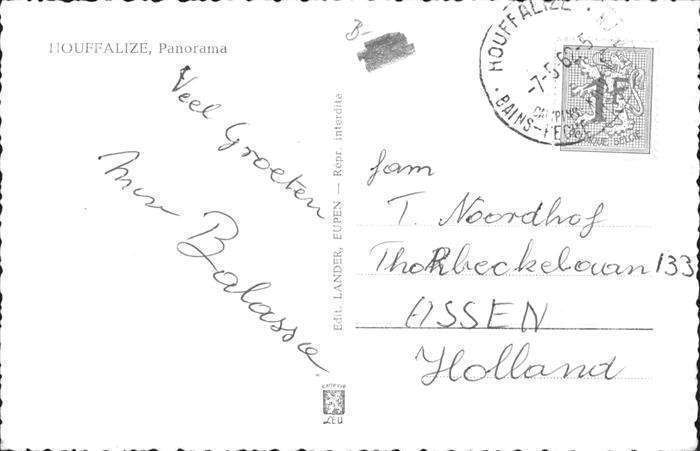 HOUFFALIZE, Panorama
B-
Veel Groeten
Balassa
Edit. LANDER, EUPEN — Repr. interdite
LEU
HOUFFALIZE
-7-5-62-5
BAINS-PECHE
CAMPING
1F
BELGIQUE-BELGIE
fam
T. Noordhof
Thorbeckelaan 133
ASSEN
Holland